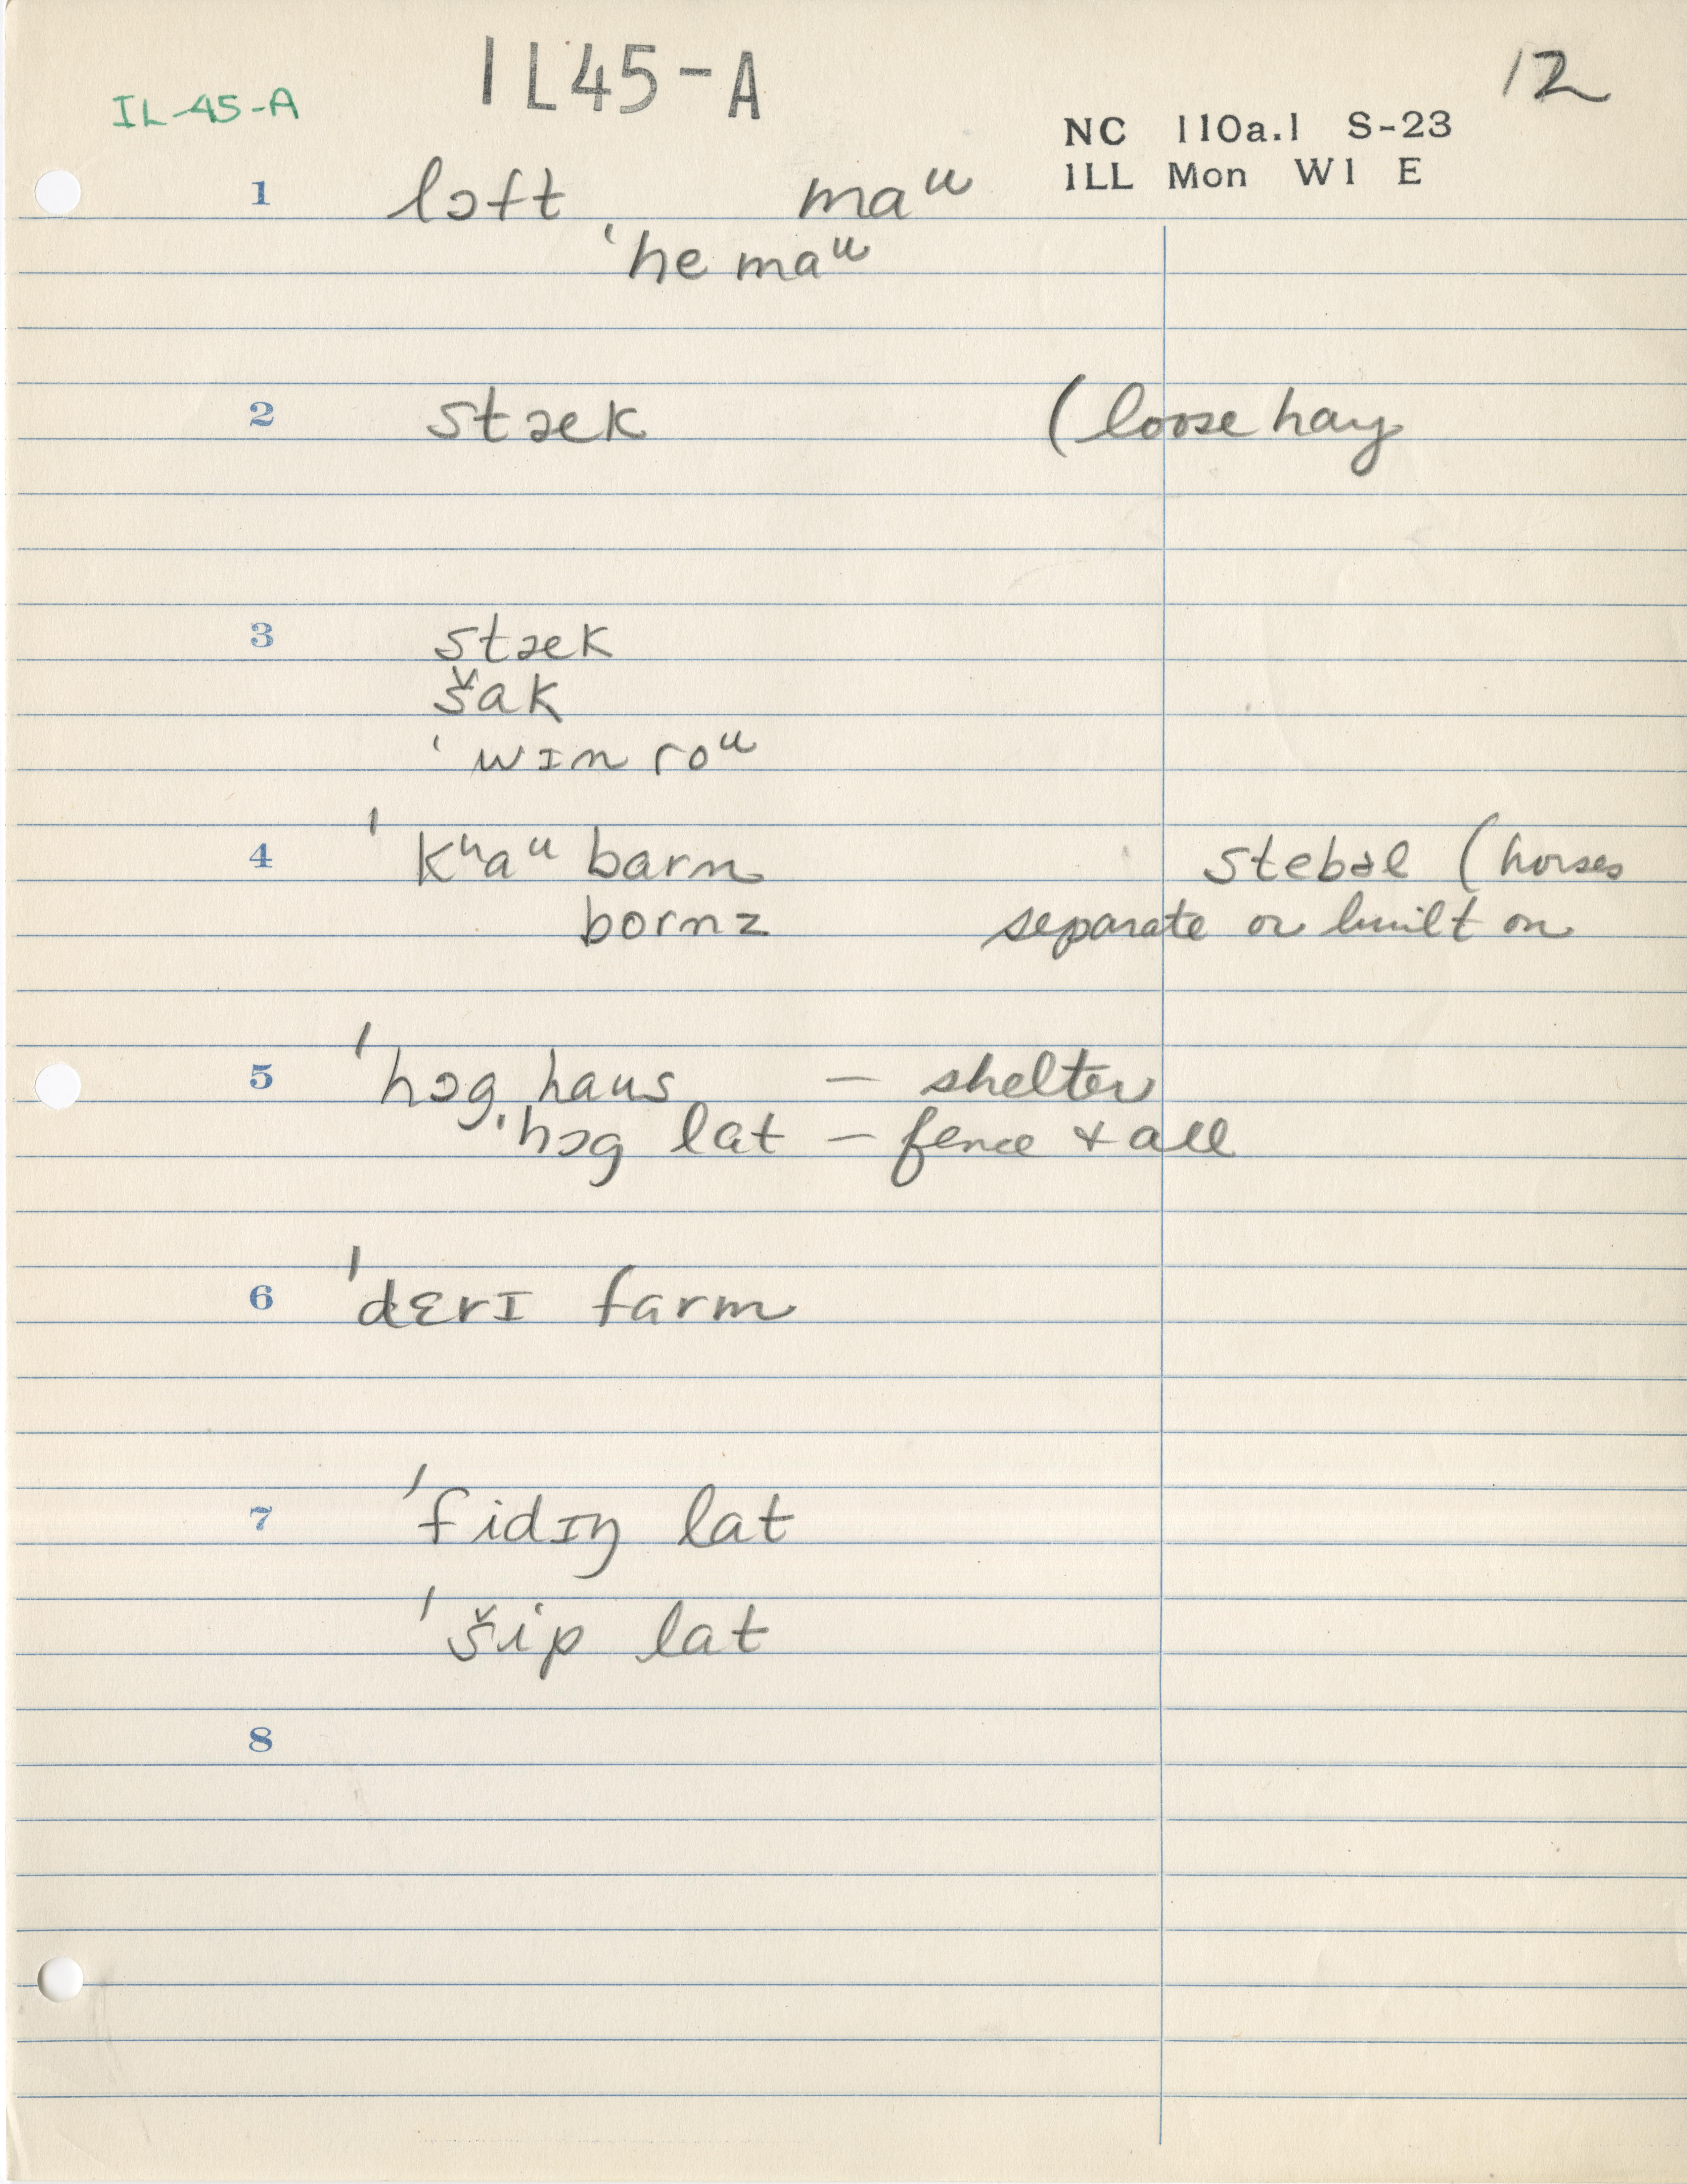 IL45-A
12
IL-45-A
NC 110a.1 S-23
ILL Mon W1 E
1 lɔft maᵘ
ˈhe maᵘ
2 stæk (loose hay
3 stæk
šak
ˈwɪn roᵘ
4 ˈkʰaᵘ barn stebəl (horses
bornz separate or built on
5 ˈhɔg haus — shelter
ˈhɔg lat — fence & all
6 ˈdɛrɪ farm
7 ˈfidɪŋ lat
ˈšip lat
8